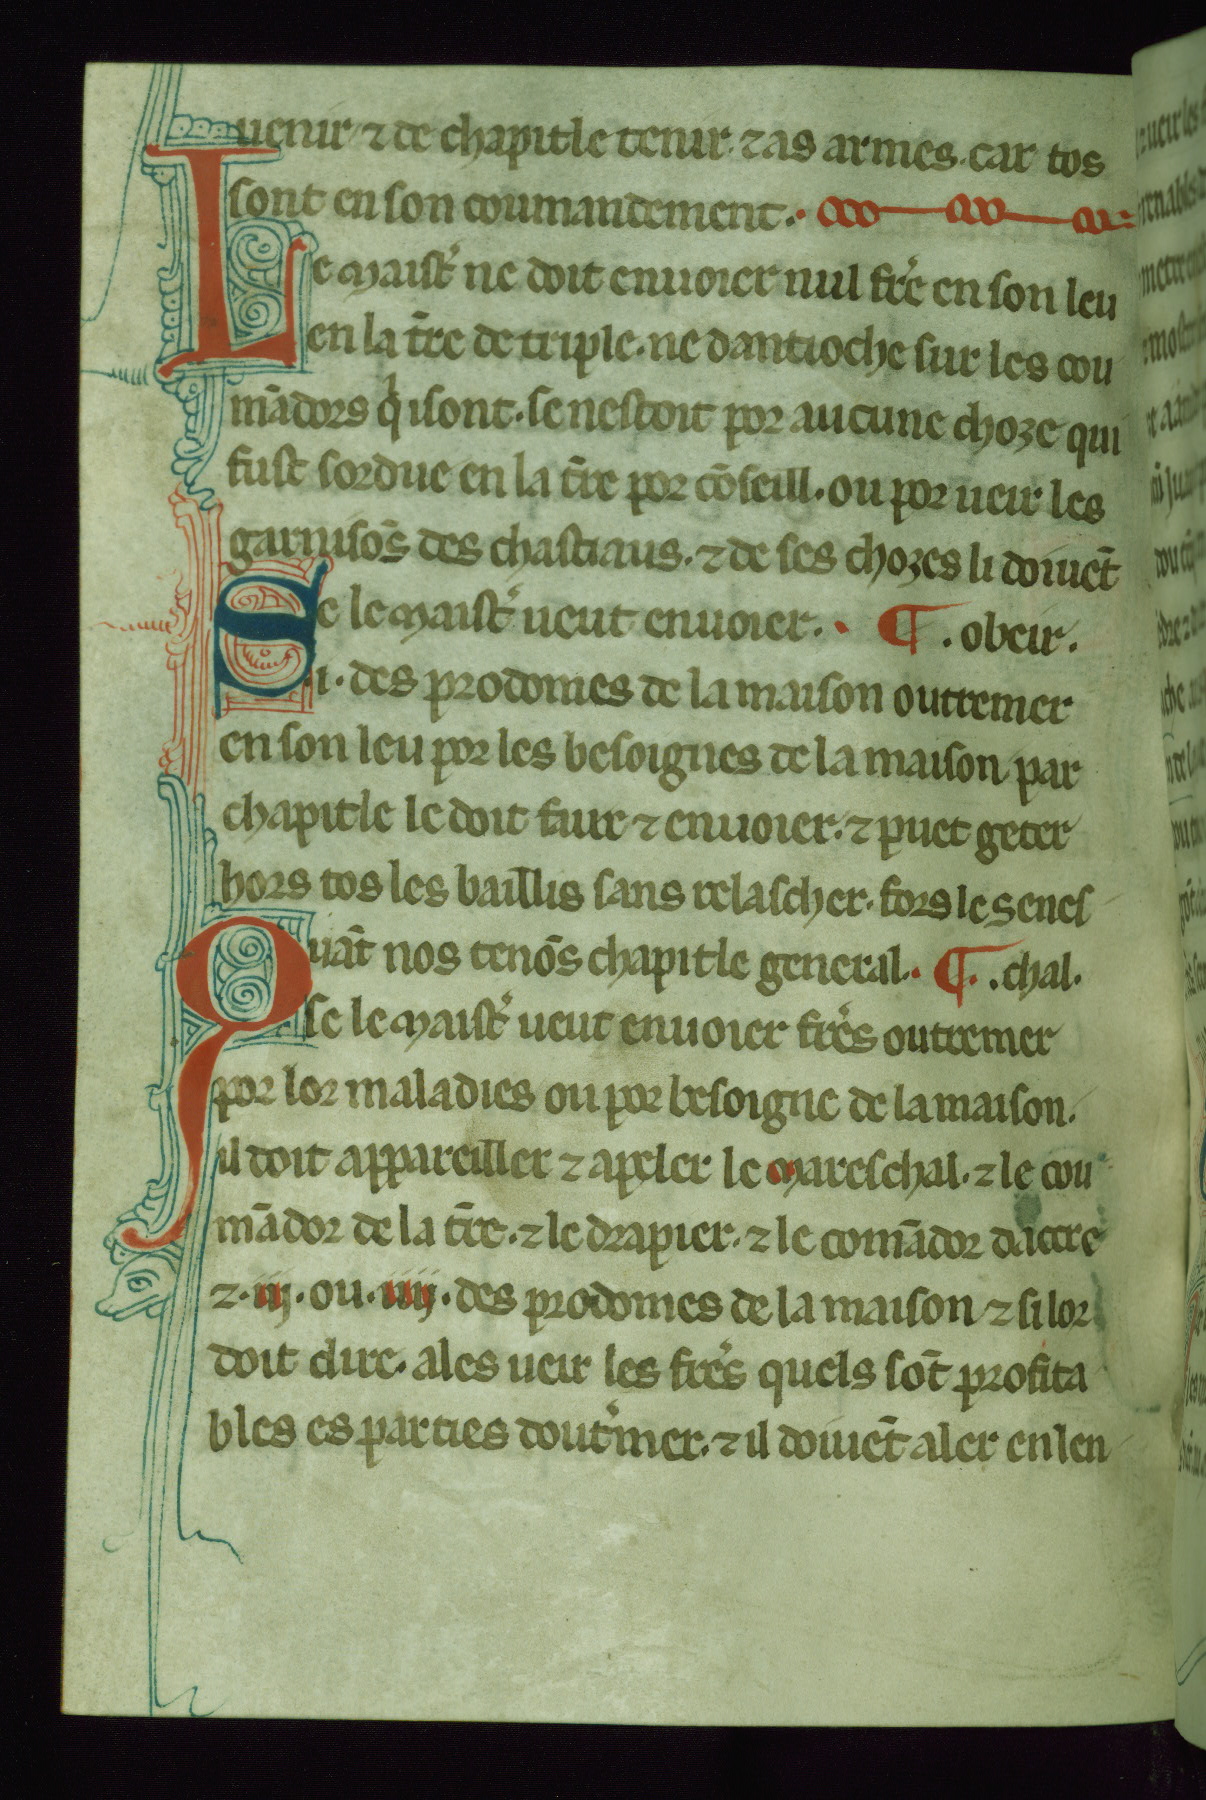 uenir ⁊ de chapitle tenir. ⁊ as armes. car tos
sont en son coumandement.
Le maist̉ ne doit enuoier nul fr̉e en son leu
en la t̄re de triple. ne dantioche sur les cou
mādors qͥ i sont. se nestoit por aucune choze qui
fust sordue en la t̄re por cōseill. ou por ueir les
garnisōs des chastiaus. ⁊ de ses chozes li doiuēt
¶ . obeir.
Se le maist̉ ueut enuoier.
.i. des prodomes de la maison outremer
en son leu por les besoignes de la maison par
chapitle le doit faire ⁊ enuoier. ⁊ puet geter
hors tos les baillis sans relascher. fors le senes
¶ . chal.
Quāt nos tenōs chapitle general.
se le maist̉ ueut enuoier fr̉es outremer
por lor maladies ou por besoigne de la maison.
il doit appareiller ⁊ apeler le mareschal. ⁊ le cou
mādor de la t̄re. ⁊ le drapier. ⁊ le comādor dacre
⁊ .iij. ou .iiij. des prodomes de la maison ⁊ si lor
doit dire. ales ueir les fr̉es quels sōt profita
bles es parties dout̉mer. ⁊ il doiuēt aler en len